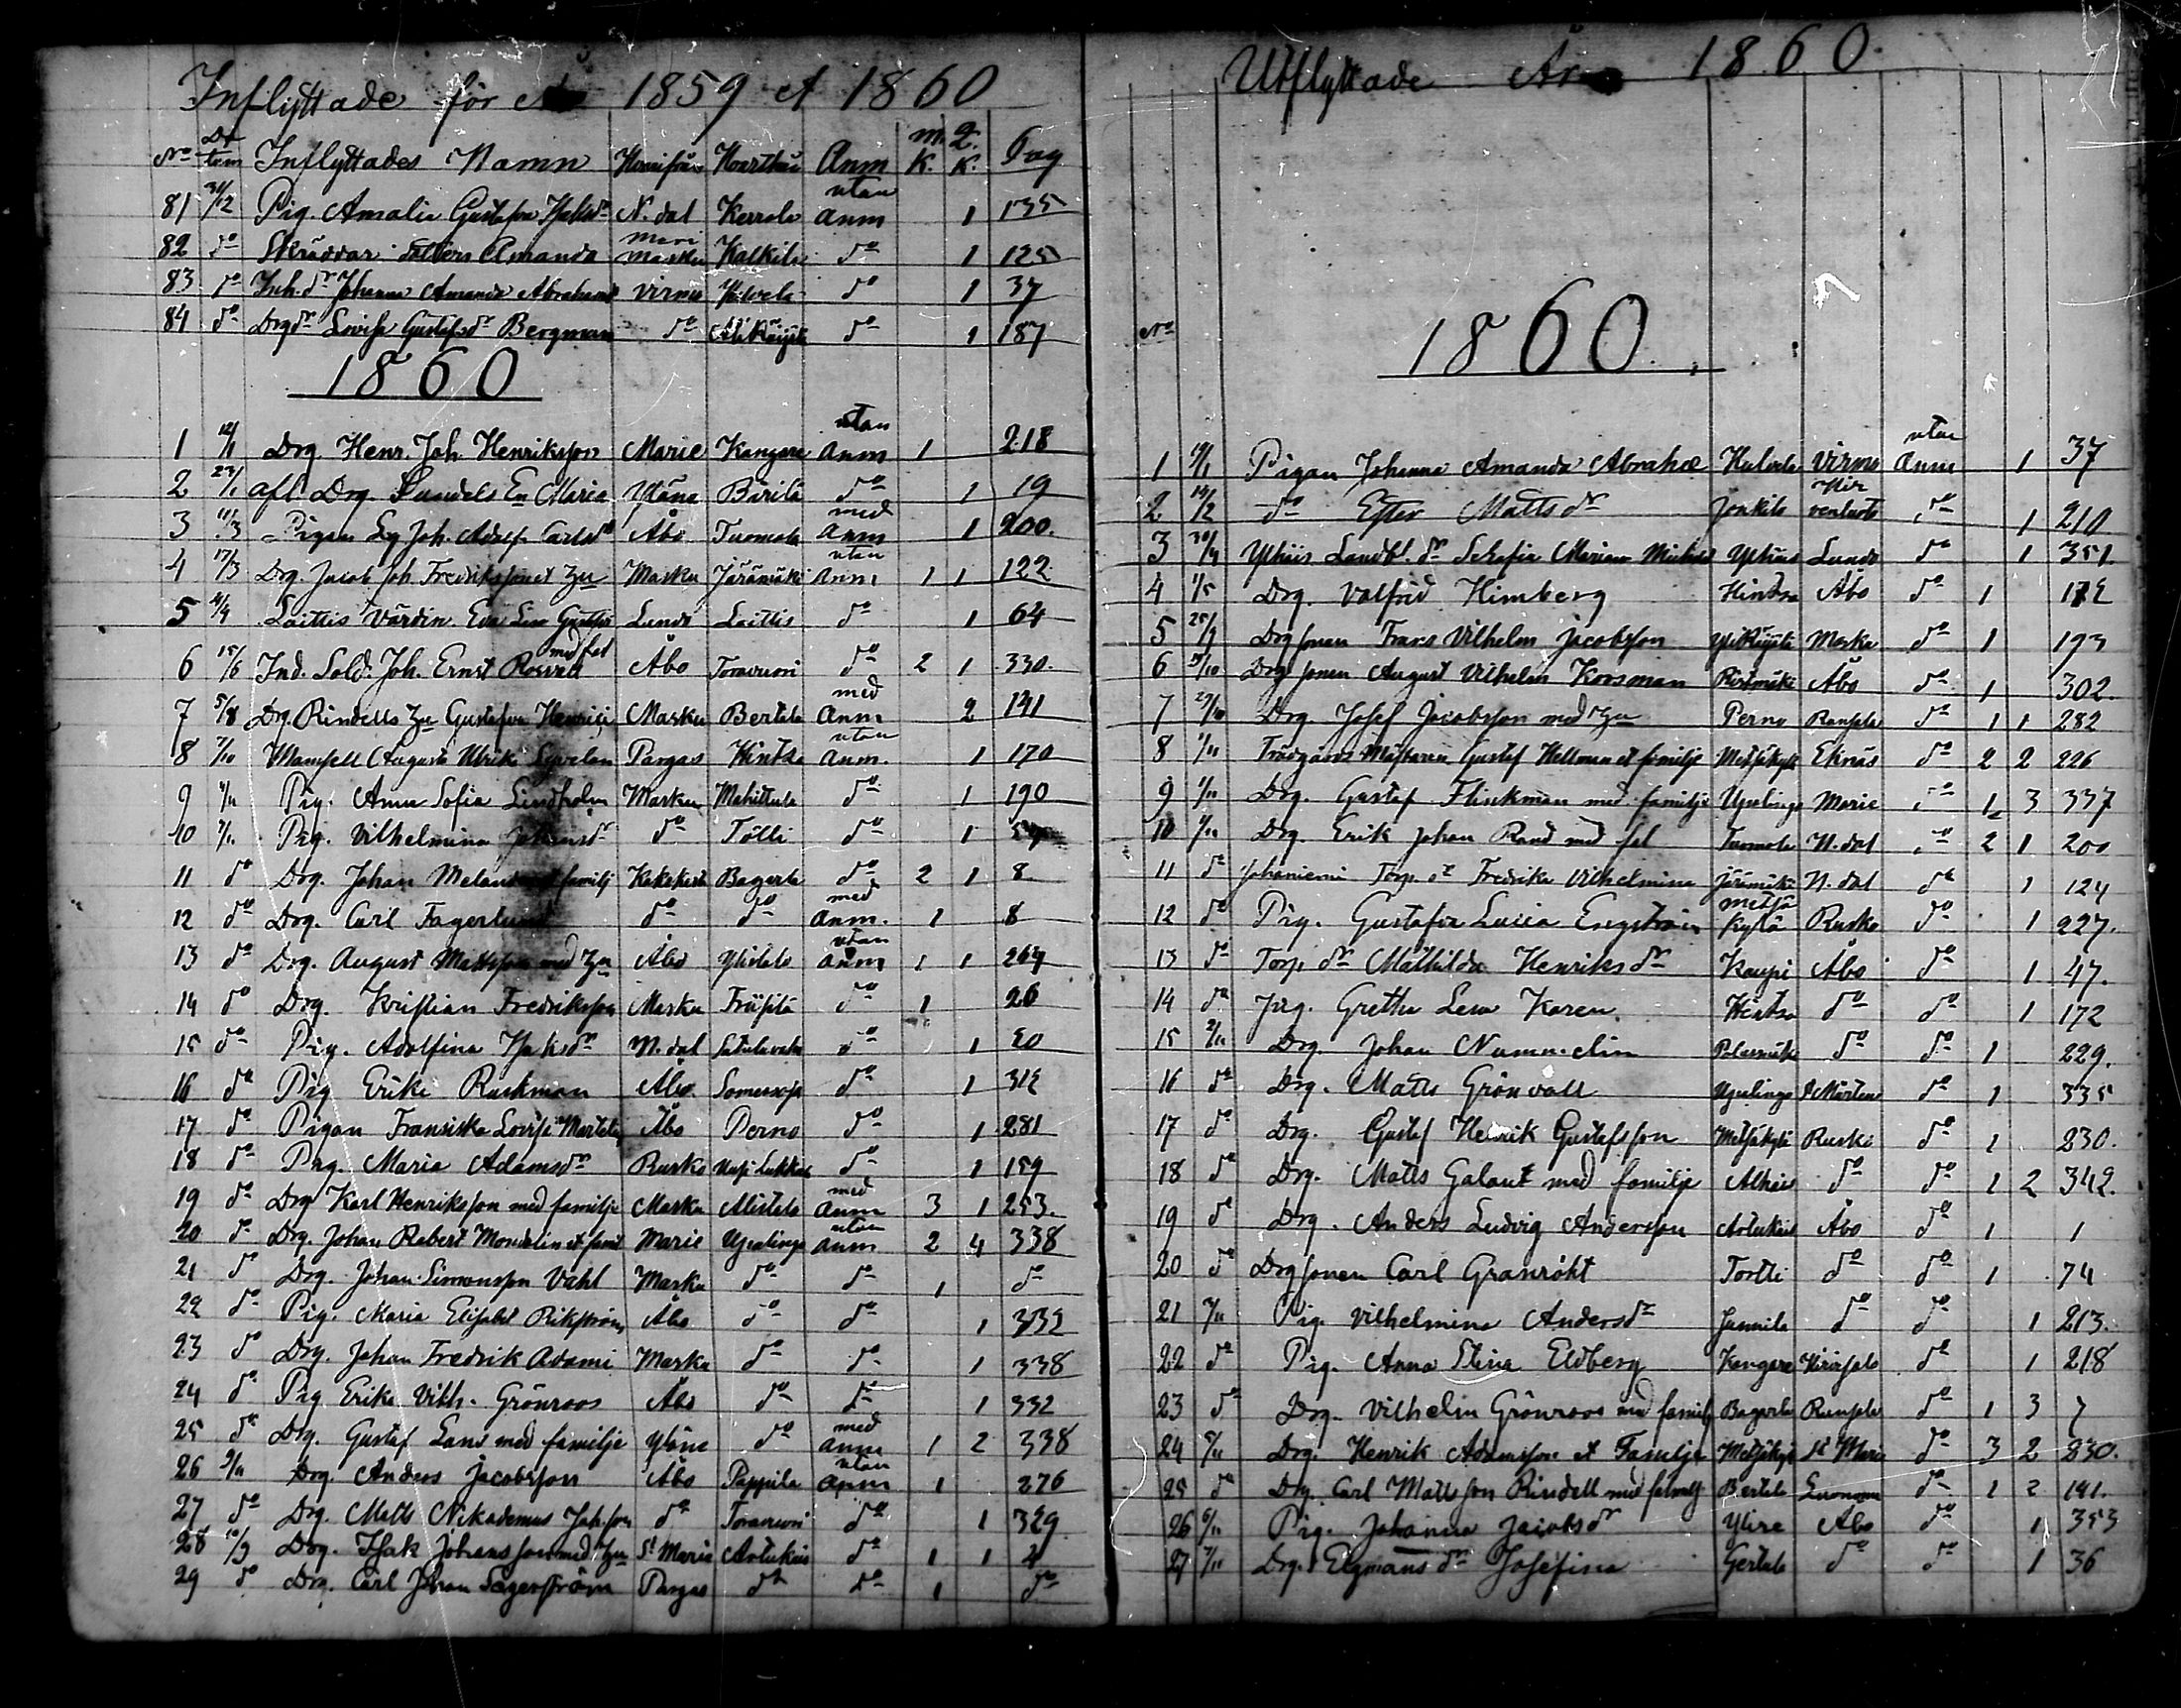 Inflyttade för År 1859 et 1860
No Datum Inflyttades Namn Hvarifrån Hvarthän Anm m.k. q.k. Pag
81 31/12 Pig. Amalia Gustafva Isaksdr N.dal Kerrola utan anm 1 135
82 do Skräddar Amanda marie masku Kalkila do 1 125
83 do Inh.dr Johanna Amanda Abrahamsd Virmo do 1 37
84 do Drgdr Lovisa Gustafsdr Bergman do do 1 187
1860
1 12/1 Drg. Henr. Joh. Henriksson Marie Kangare utan anm 1 218
2 23/1 afl. Drg. Sundels En. Maria Yläne Bärilä do 1 19
3 11/3 Pigan Joh. Adolf. Carlsd Åbo Tuomola med anm 1 200.
4 17/3 Drg. Jacob Joh. Fredriksson et Hu Masku Järämäki utan anm 1 1 122
5 4/4 Laittis Värdin. Eva Lisa Gustafsd Lundo Laittis do 1 64
6 15/6 Ind. Sold. Joh. Ernst Rosved med fal Åbo Toravuori do 2 1 330.
7 5/8 Drg. Rindells Hu Gustafva Henrici Masku Bertala med anm 2 141
8 7/10 Mamsell Augusta Ulrika Pargas Hintsa utan anm. 1 170
9 1/11 Pig. Anna Sofia Lindholm Masku Mahittula do 1 190
10 Pig. Vilhelmina Johansdr do Tölli do 1
11 do Drg. Johan Meland familj Kakskerta Bagerla do 2 1 8
12 do Drg. Carl Fagerlund do do med anm. 1 8
13 do Drg. August Mattsson med Hu Åbo Ylistalo utan anm 1 1 264
14 do Drg. Kristian Fredriksson Masku Träfilä do 1 26
15 do Pig. Adolfina Isaksdr N.dal Satulavaha do 1 20
16 do Pig Erika Ruckman Åbo Somersoja do 1 312
17 do Pigan Fransiska Lovisa Martelin Åbo Perno do 1 281
18 do Pig. Maria Adamsdr Rusko Uusi Lukkar do 1 159
19 do Drg Karl Henriksson med familje Masku Alistalo med anm 3 1 253.
20 do Drg. Johan Robert Mondelin et famil Marie Upalinga utan anm 2 4 338
21 do Drg. Johan Simonsson Vahl Masku do do 1 do
22 do Pig. Maria Elisabet Rikström Åbo do do 1 332
23 do Drg. Johan Fredrik Adami Masku do do 1 338
24 do Pig Erika Vilh. Grönroos Åbo do do 1 332
25 do Drg. Gustaf Land med familje Yläne do med anm 1 2 338
26 3/11 Drg. Anders Jacobsson Åbo Pappila utan anm 1 276
27 do Drg. Matts Nikademus Joh.son do Toravuori do 1 329
28 10/9 Drg. Isak Johansson med Hu St Marie Artukais do 1 1 2
29 do Drg. Carl Johan Sagerström Pargas do do 1 do
Utflyttade År 1860
No
1860.
1 19/1 Pigan Johanna Amanda Abrahæ Hulvela Virmo utan Anm 1 37
2 14/2 do Ester Mattsdr Jonkila do 1 210
3 30/4 Ylhäis Landb.dr Sefia Mariana Michels Ylhäis Lundo do 1 351.
4 1/5 Drg. Valfrid Himberg Hintsa Åbo do 1 172
5 25/9 Drgsonen Frans Vilhelm Jacobsson Masku do 1 193
6 3/10 Drgsonen August Vilhelm Korsman Ristimäki Åbo do 1 302.
7 29/10 Drg Josef Jacobsson med Hu Perno Ranjala do 1 1 282
8 1/11 Trädgårds Mästaren Gustaf Hellman et familje Metsäkylä Ekenäs do 2 2 226
9 1/11 Drg. Gustaf Flinkman med familje Upalinga Marie do 1 3 337
10 1/11 Drg. Erik Johan Rand med fal Tuomola N.dal do 2 1 200
11 do Johaniemi Torp.dr Fredrika Vilhelmina Järämäki N.dal do 1 124
12 do Pig. Gustafva Lucia Engström Metsäkylä Rusko do 1 227.
13 do Torp.dr Mathilda Henriksdr Kaupi Åbo do 1 47.
14 do Pig. Gretha Lena Karen. Hintsa do do 1 172
15 2/11 Drg. Johan Nummelin do do 1 229.
16 do Drg. Matts Grönvall Upalinga St Mårtens do 1 335
17 do Drg. Gustaf Henrik Gustafsson Metsäkylä Rusko do 1 230.
18 do Drg. Matts Galant med familje Alhäis do do 1 2 342.
19 do Drg. Anders Ludvig Andersson Artukais Åbo do 1 1
20 do Drgsonen Carl Granrökt Tortti do do 1 74
21 3/11 Pig. Vilhelmina Andersdr Junnila do do 1 213.
22 do Pig. Anna Stina Eldberg Kangare Virisalo do 1 218
23 do Drg. Vilhelm Grönroos med familj Bagerla Runsala do 1 3 7
24 5/11 Drg. Henrik Adamsson et Familje Metsäkylä St Marie do 3 2 230.
25 do Drg. Carl Mattsson Rindell med familj Bertala do 1 2 141.
26 6/11 Pig. Johanna Jacobsdr Åbo do 1 353
27 7/11 Drg. Elgmans dr Josefina Gertala do do 1 36